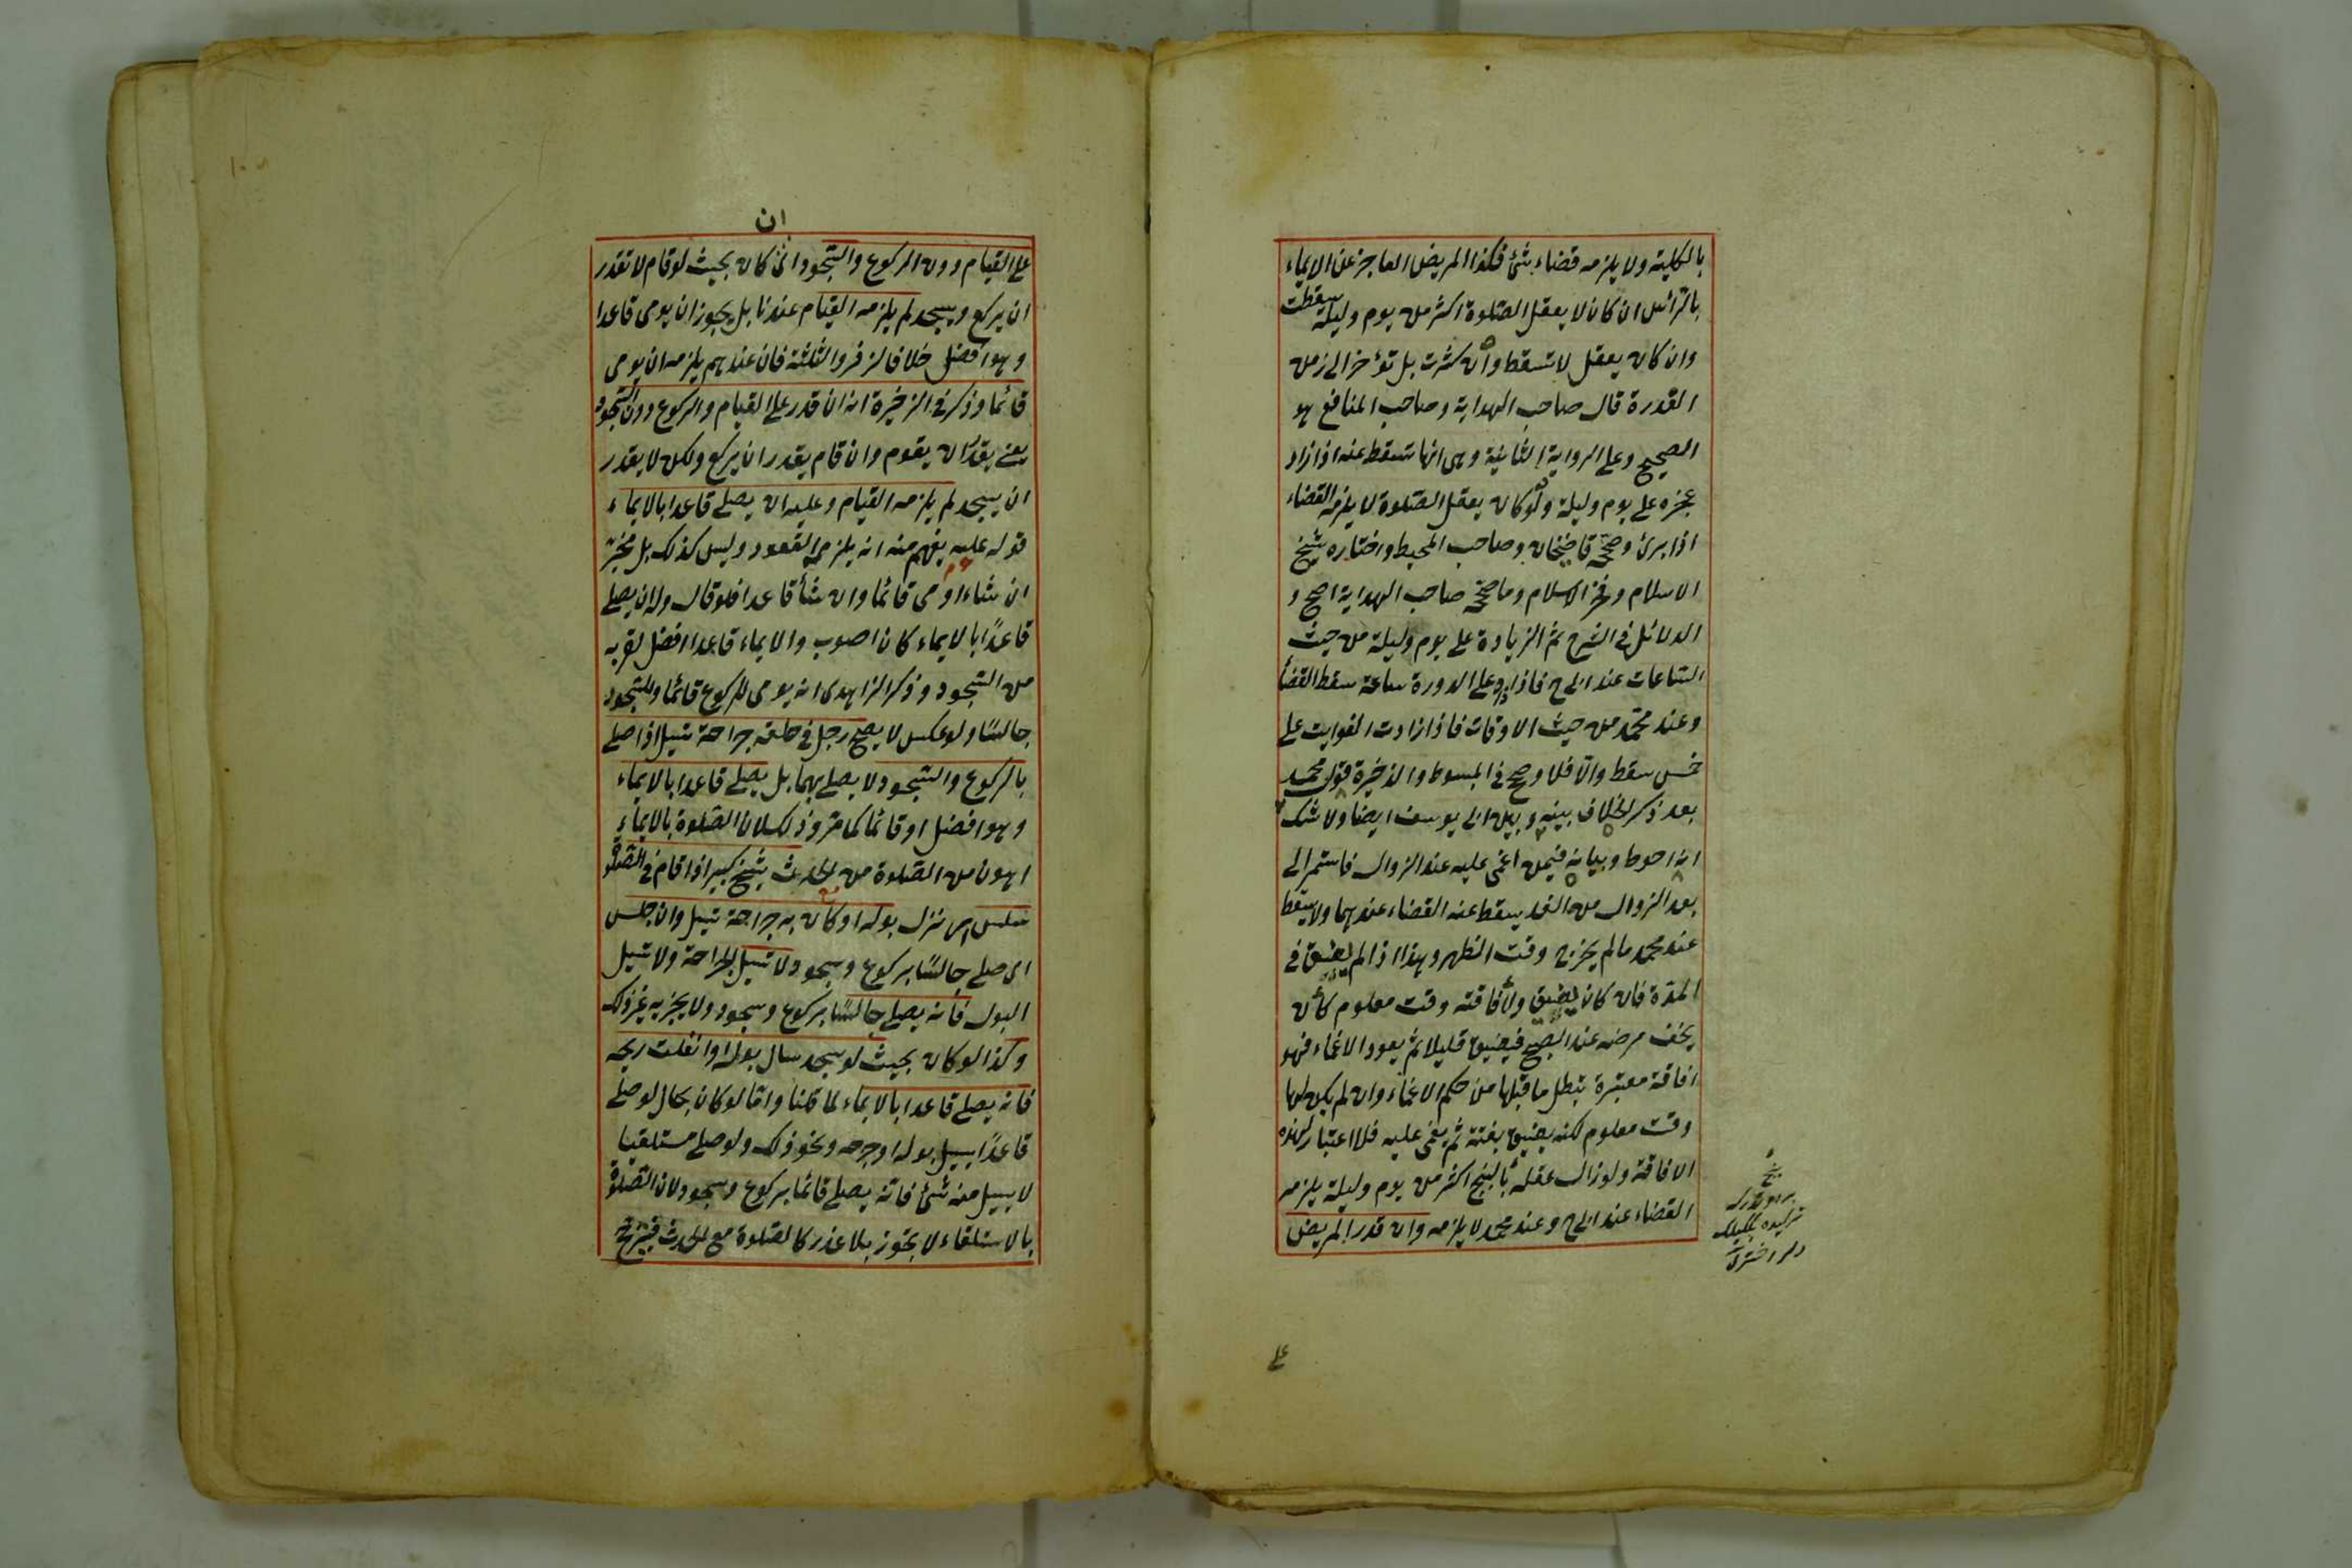 بالكلية ولا يلزمه قضاء شئ فكذا المريض العاجز عن الايماء
بالرأس ان كان لا يعقل الصلوة اكثر من يوم وليلة سقطت
وان كان يعقل لا تسقط وان كثرت بل تؤخر الى زمن
القدرة قال صاحب الهداية وصاحب المنافع هو
الصحيح وعلى الرواية الثانية وهى انها تسقط عنه اذا زاد
عجزه على يوم وليلة ولو كان يعقل الصلوة لا يلزمه القضاء
اذا برئ وصححه قاضيخان وصاحب المحيط واختاره شيخ
الاسلام وفخر الاسلام وما صححه صاحب الهداية اصح و
الدلائل فى الشرح ثم الزيادة على يوم وليلة من حيث
الساعات عند ابى ح فاذا زاد على الدورة ساعة سقط القضأ
وعند محمد من حيث الاوقات فاذا زادت الفوايت على
خمس سقط والا فلا وصح فى المبسوط والذخيرة قول محمد
بعد ذكر الخلاف بينه وبين ابى يوسف ايضا ولا شك
انه احوط وبيانه فيمن اغمى عليه عند الزوال فاستمر الى
بعد الزوال من الغد يسقط عنه القضاء عندهما ولا يسقط
عند محمد ما لم يخرج وقت الظهر وهذا اذا لم يفيق فى
المدة فان كان يفيق ولأفاقته وقت معلوم كأن
يخف مرضه عند الصبح فيفيق قليلا ثم يعود الاغماء فهو
افاقة معتبرة تبطل ما قبلها من حكم الاغماء وان لم يكن لها
وقت معلوم لكنه يفيق بغتة ثم يغمى عليه فلا اعتبار لهذه
الافاقة ولو زال عقله بالبنج اكثر من يوم وليلة يلزمه
القضاء عند ابى ح وعند محمد لا يلزمه وان قدر المريض
بنج
على
ان
على القيام دون الركوع والسجود اى كان بحيث لو قام لا تقدر
ان يركع ويسجد لم يلزمه القيام عندنا بل يجوز ان يومى قاعدا
وهو افضل خلافا لزفر والثلثة فان عندهم يلزمه ان يومى
قائما وذكر فى الذخيرة انه ان قدر على القيام والركوع دون السجود
يعنى يقدر ان يقوم وان قام يقدر ان يركع ولكن لا يقدر
ان يسجد لم يلزمه القيام وعليه ان يصلى قاعدا بالايماء
قوله عليه يفهم منه انه يلزمه القعود وليس كذلك بل مخير
ان شاء اومى قائما وان شأ قاعدا فلو قال وله ان يصلى
قاعدًا بالايماء كان اصوب والايماء قاعدا افضل لقربه
من السجود وذكر الزاهدى انه يومى للركوع قائما وللسجود
جالسًا ولو عكس لا يصح رجل فى حلقه جراحة تسيل اذا صلى
بالركوع والسجود لا يصلى بهما بل يصلى قاعدا بالايماء
وهو افضل او قائما كما مر وذلك لان الصلوة بالايماء
اهون من الصلوة من الحدث شيخ كبير اذا قام فى الصلوة
سلس اى نزل بوله او كان به جراحة تسيل وان جلس
اى صلى جالسًا بركوع وسجود لا تسيل الجراحة ولا تسيل
البول فانه يصلى جالسًا بركوع وسجود ولا يجزيه غير ذلك
وكذا لو كان بحيث لو سجد سال بوله او انفلت ريحه
فانه يصلى قاعدا بالايماء لما قلنا واما لو كان بحال لو صلى
قاعدًا يسيل بوله او جرحه ونحو ذلك ولو صلى مستلقيا
لا يسيل منه شئ فانه يصلى قائما بركوع وسجود لان الصلوة
بالاستلقاء لا يجوز بلا عذر كالصلوة مع الحدث فيترجح